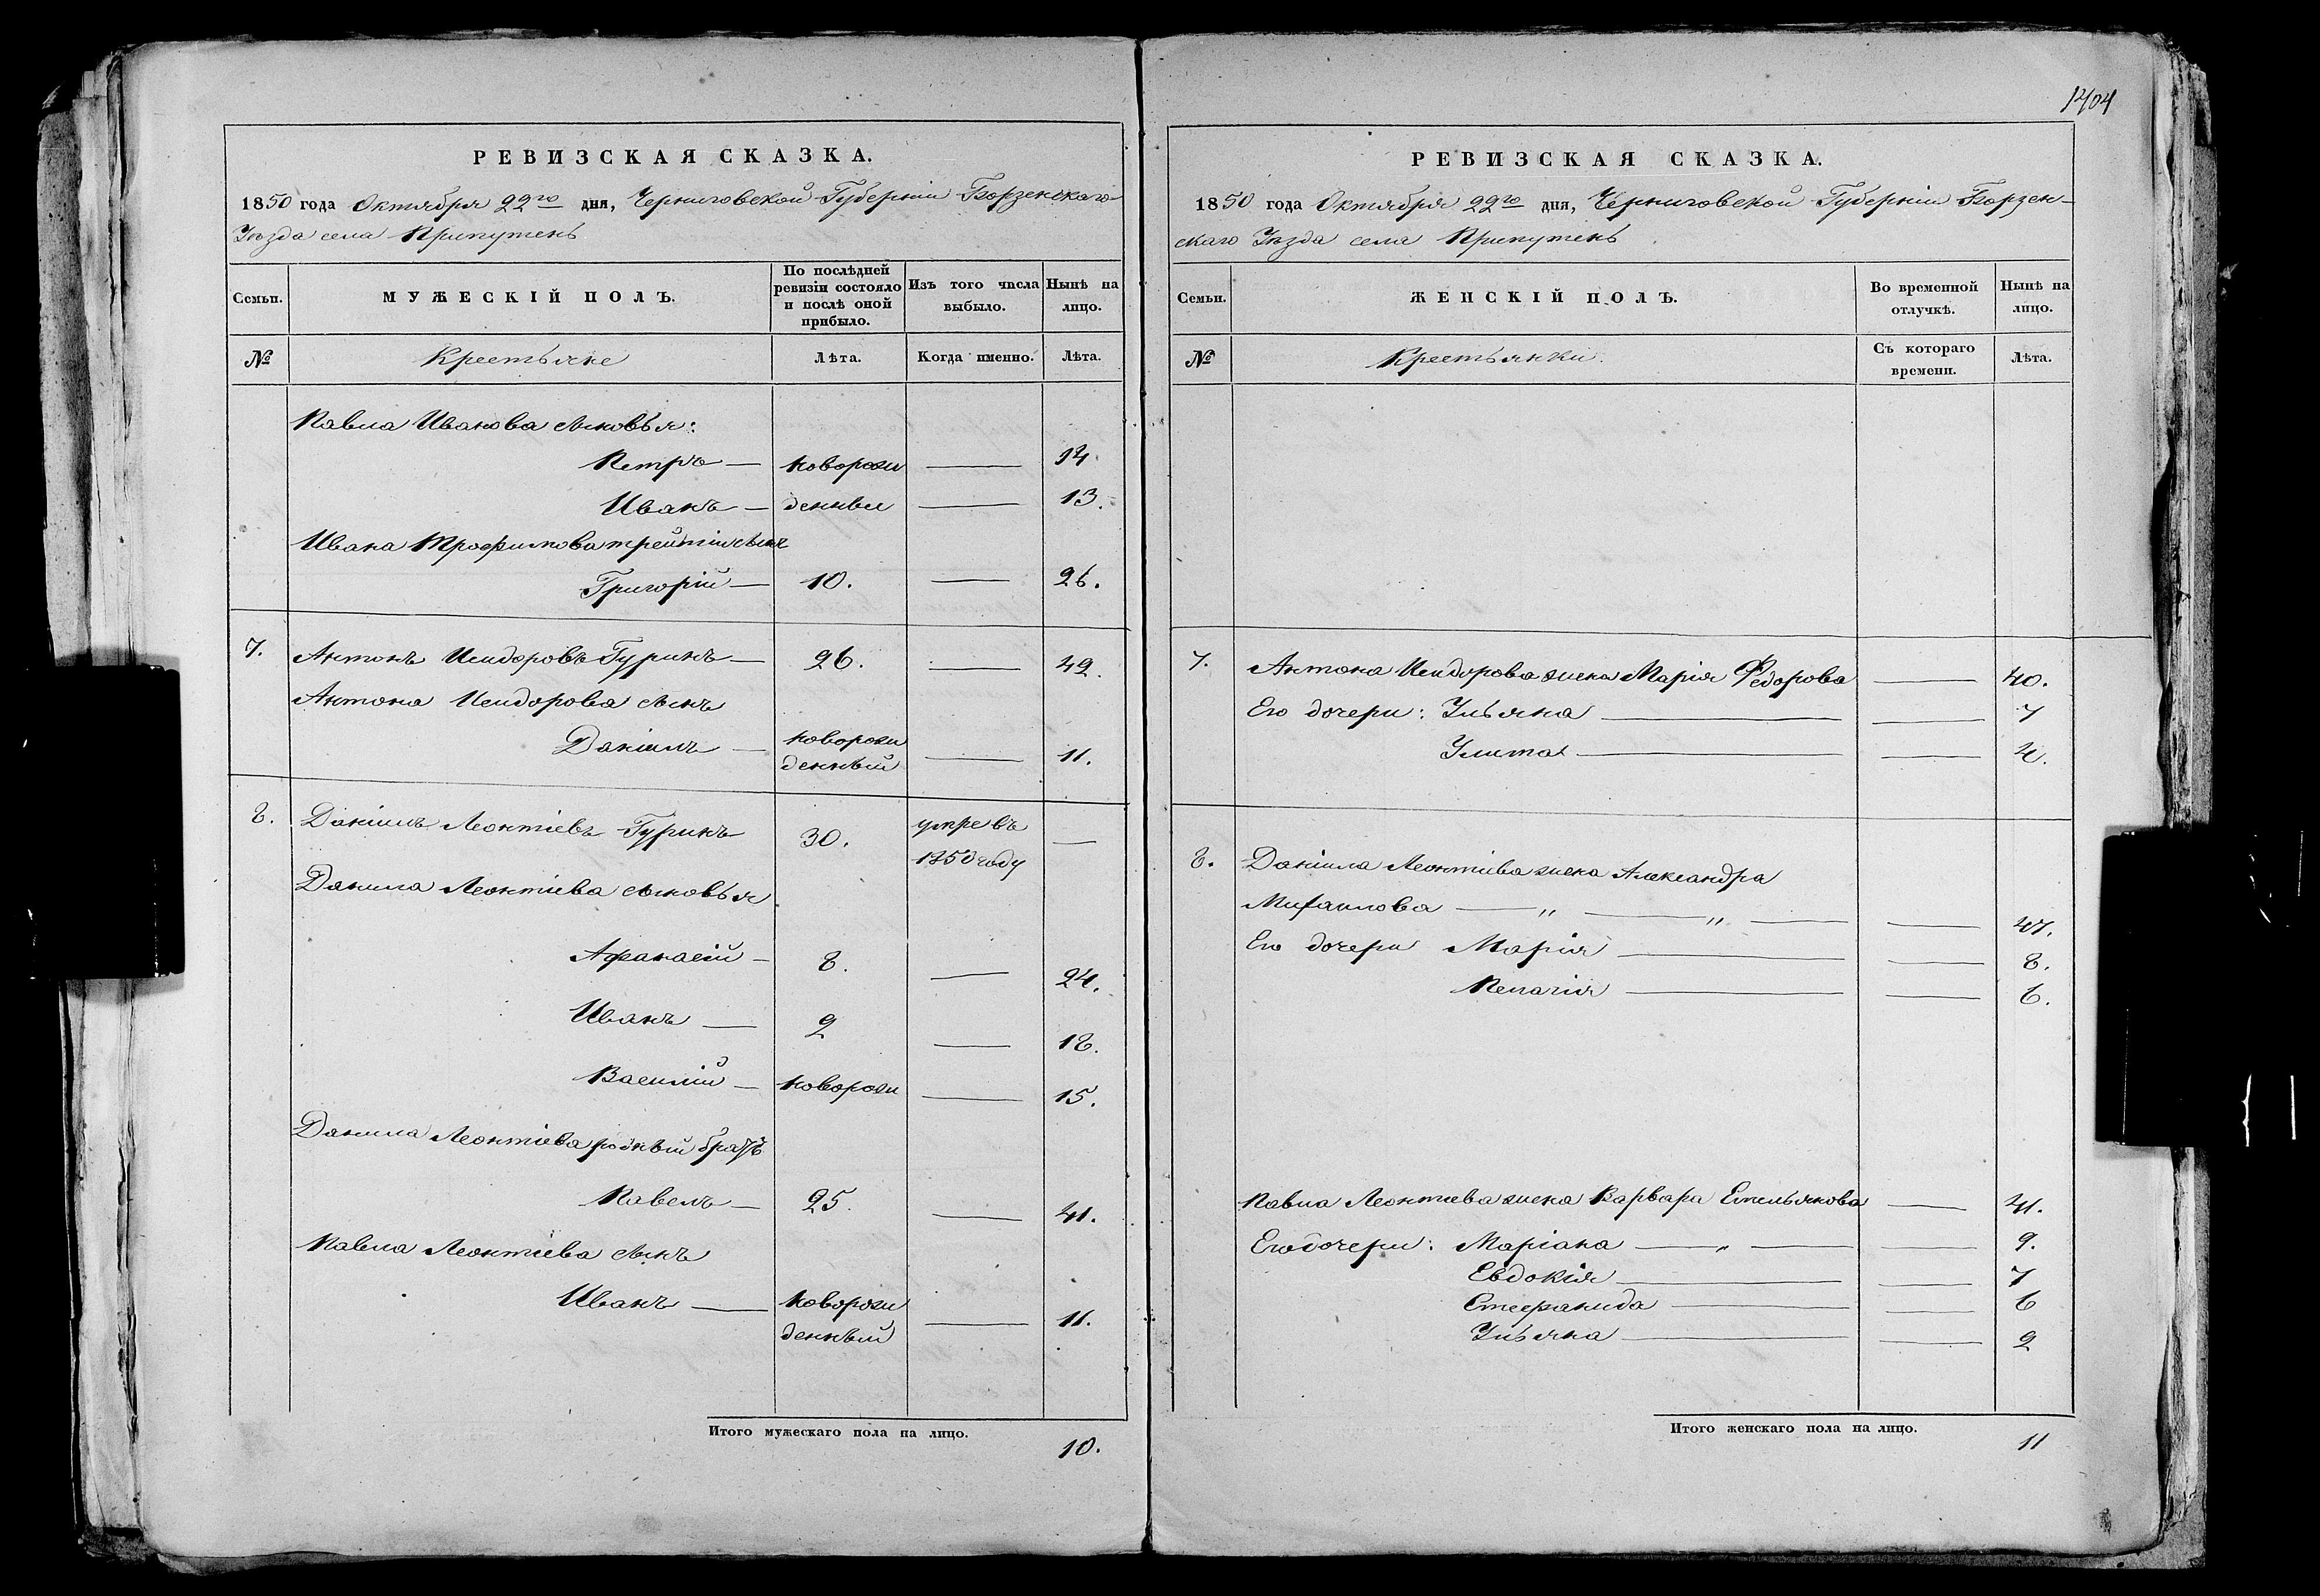 1404
РЕВИЗСКАЯ СКАЗКА.
1850 года Октября 22го дня, Черниговской Губерніи Борзенскаго
Уѣзда села Припутень
Семьи. МУЖЕСКІЙ ПОЛЪ. По послѣдней ревизіи состояло и послѣ оной прибыло. Изъ того числа выбыло. Нынѣ на лицо.
№ Крестьяне Лѣта. Когда именно. Лѣта.
Павла Иванова сыновья:
Петръ — новорож — 14
Иванъ — денные — 13.
Ивана Трофимова третій сынъ
Григорій — 10. — 26.
7. Антонъ Исидоровъ Гуринъ — 26. — 42.
Антона Исидорова сынъ
Даніилъ — новорож
денный — 11.
8. Даніилъ Леонтіевъ Гуринъ 30. умре въ —
1850 году
Данила Леонтіева сыновья
Афанасій — 8. — 24.
Иванъ — 2 — 18.
Василій — новорож — 15.
Данила Леонтіева родный братъ
Павелъ — 25. — 41.
Павла Леонтіева сынъ
Иванъ — новорож
денный — 11.
Итого мужескаго пола на лицо.
10.
РЕВИЗСКАЯ СКАЗКА.
1850 года Октября 22го дня, Черниговской Губерніи Борзен-
скаго Уѣзда села Припутень
Семьи. ЖЕНСКІЙ ПОЛЪ. Во временной отлучкѣ. Нынѣ на лицо.
№ Крестьянки. Съ котораго времени. Лѣта.
7. Антона Исидорова жена Марія Федорова — 40.
Его дочери: Ульяна — — 7
Улита — — 4.
8. Даніила Леонтіева жена Александра
Михаилова — „ — „ — — 47.
Его дочери Марія — — 8.
Пелагія — — 6.
Павла Леонтіева жена Варвара Емельянова — 41.
Его дочери: Маріана — „ — — 9.
Евдокія — — 7
Стефанида — — 6
Ульяна — — 2
Итого женскаго пола на лицо.
11